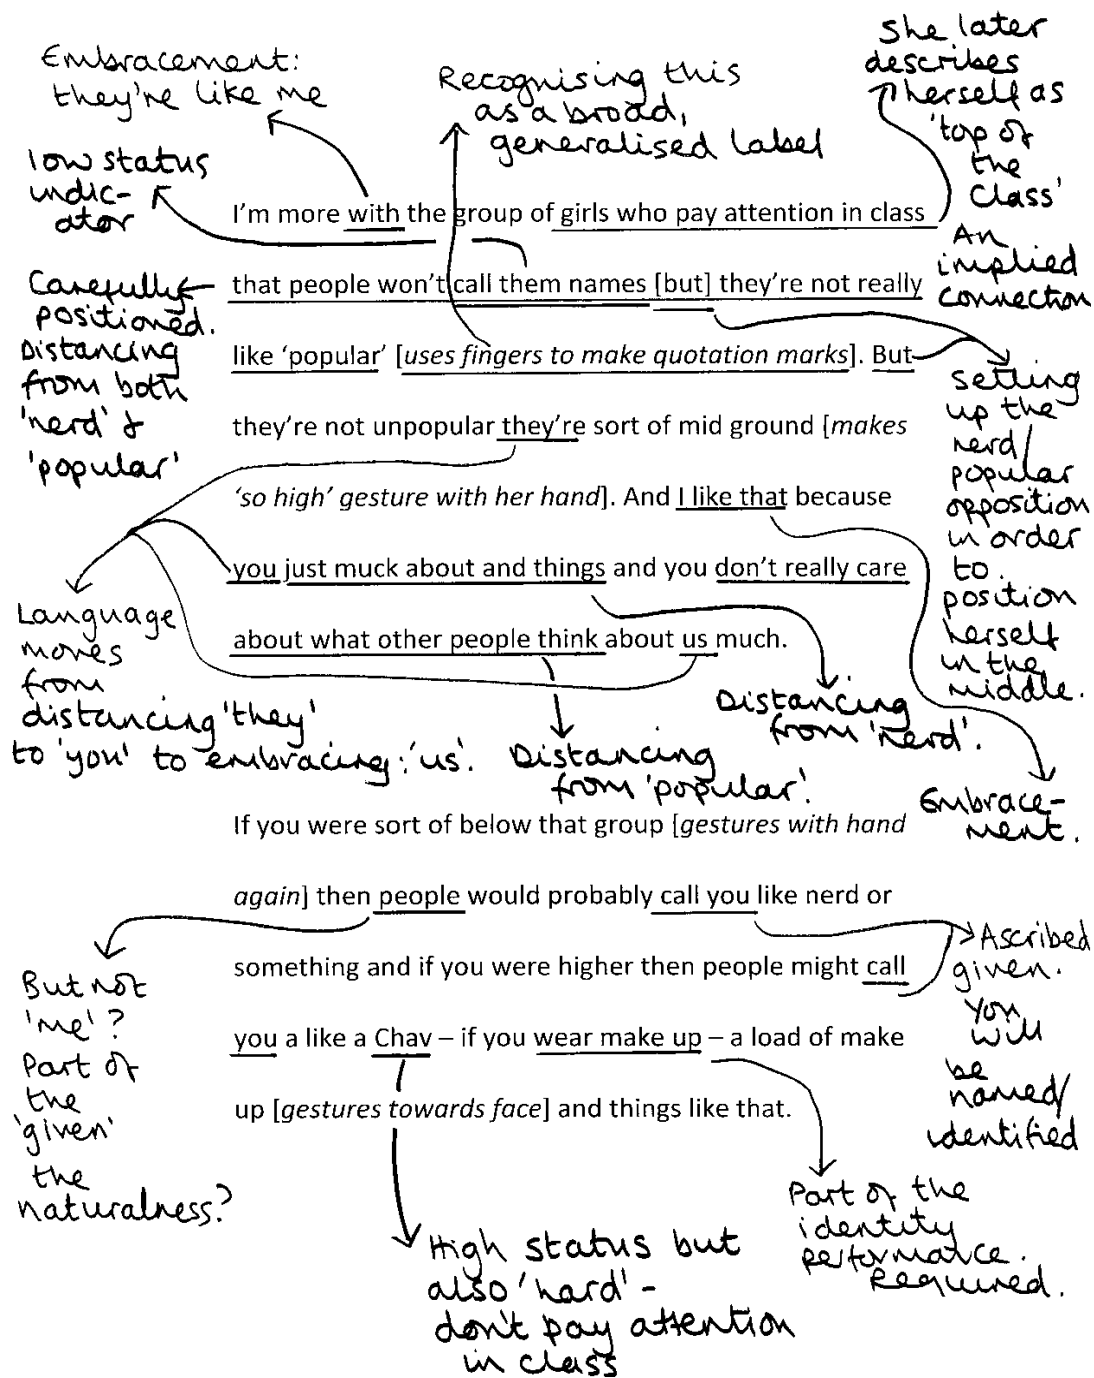 Embracement:
they're like me
Recognising this
as a broad,
generalised label
She later
describes
herself as
'top of
the
class'
An
implied
connection
low status
indic-
ator
Carefully
positioned.
Distancing
from both
'nerd' &
'popular'
I'm more with the group of girls who pay attention in class
that people won't call them names [but] they're not really
like 'popular' [uses fingers to make quotation marks]. But
they're not unpopular they're sort of mid ground [makes
'so high' gesture with her hand]. And I like that because
you just muck about and things and you don't really care
about what other people think about us much.
setting
up the
nerd/
popular
opposition
in order
to
position
herself
in the
middle.
Language
moves
from
distancing 'they'
to 'you' to embracing: 'us'.
Distancing
from 'popular'.
Distancing
from 'nerd'.
Embrace-
ment.
If you were sort of below that group [gestures with hand
again] then people would probably call you like nerd or
something and if you were higher then people might call
you a like a Chav – if you wear make up – a load of make
up [gestures towards face] and things like that.
But not
'me'?
Part of
the
'given'
the
naturalness?
Ascribed
given.
You
will
be
named/
identified
High status but
also 'hard' -
don't pay attention
in class
Part of the
identity
performance.
Required.